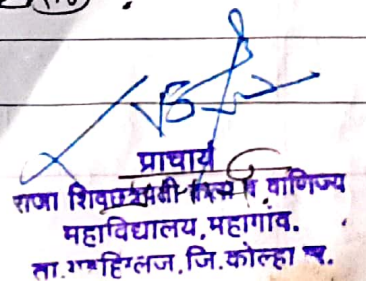 प्राचार्य
राजा शिवछत्रपती कला व वाणिज्य
महाविद्यालय, महागांव.
ता. गडहिंग्लज, जि. कोल्हापूर.